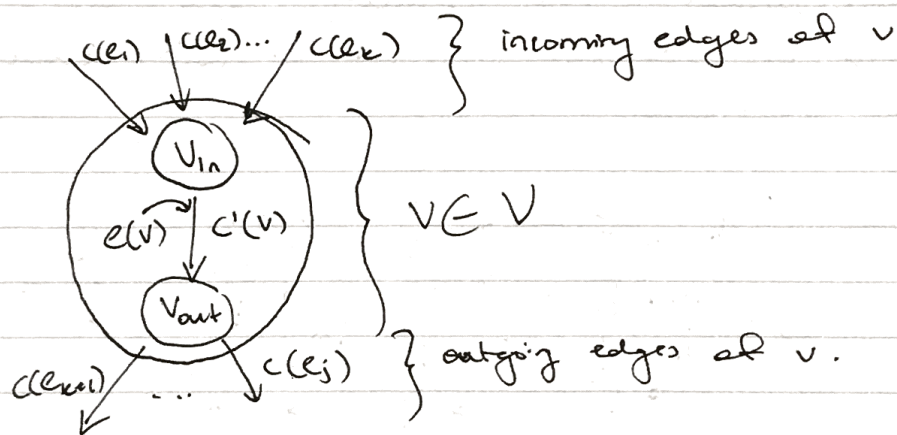 c(e₁) c(e₂)... c(eₖ) } incoming edges of v
Vin
e(v) c'(v) } v ∈ V
Vout
c(eₖ₊₁) ... c(eⱼ) } outgoing edges of v.